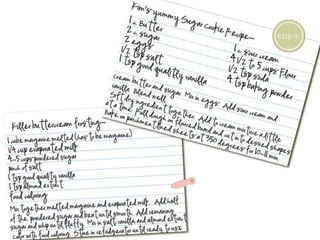 Kim's yummy Sugar cookie Recipe
1 c. Butter
2 c. sugar
2 eggs
1/2 tsp salt
1 tsp good quality vanilla
1 c. sour cream
4 1/2 to 5 cups Flour
1/2 tsp soda
4 tsp baking powder
Cream butter and sugar. Mix in eggs. Add sour cream and
vanilla. Blend well.
Sift dry ingredients together. Add to cream mixture a little
at a time. Roll dough on floured board and cut into desired shapes.
Bake on parchment lined sheets at 350 degrees for 10-11 min
enjoy
Killer buttercream frosting
1 cube margarine melted (has to be margarine)
1/4 cup evaporated milk
4-5 cups powdered sugar
pinch of salt
1 tsp good quality vanilla
1 tsp almond extract
food coloring
Mix together melted margarine and evaporated milk. Add half
of the powdered sugar and beat until smooth. Add remaining
sugar and whip until fluffy. Mix in salt, vanilla and almond extract
color with food coloring. Store in refrigerator until ready to use